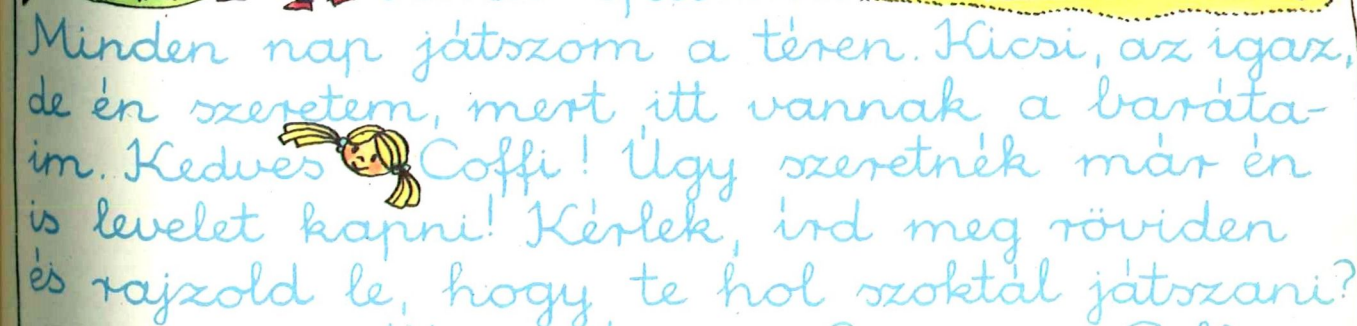 Minden nap játszom a téren. Kicsi, az igaz,
de én szeretem, mert itt vannak a baráta-
im. Kedves Coffi! Úgy szeretnék már én
is levelet kapni! Kérlek, írd meg röviden
és rajzold le, hogy te hol szoktál játszani?